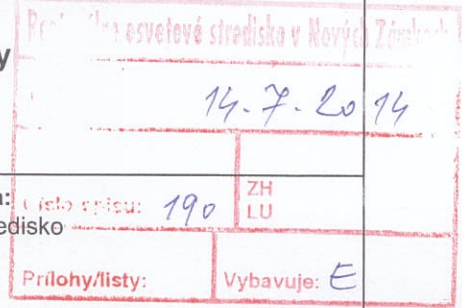 Regionálne osvetové stredisko v Nových Zámkoch
y
14.7.2014
a:
Číslo spisu: 190
ZH
LU
edisko
Prílohy/listy:
Vybavuje: E